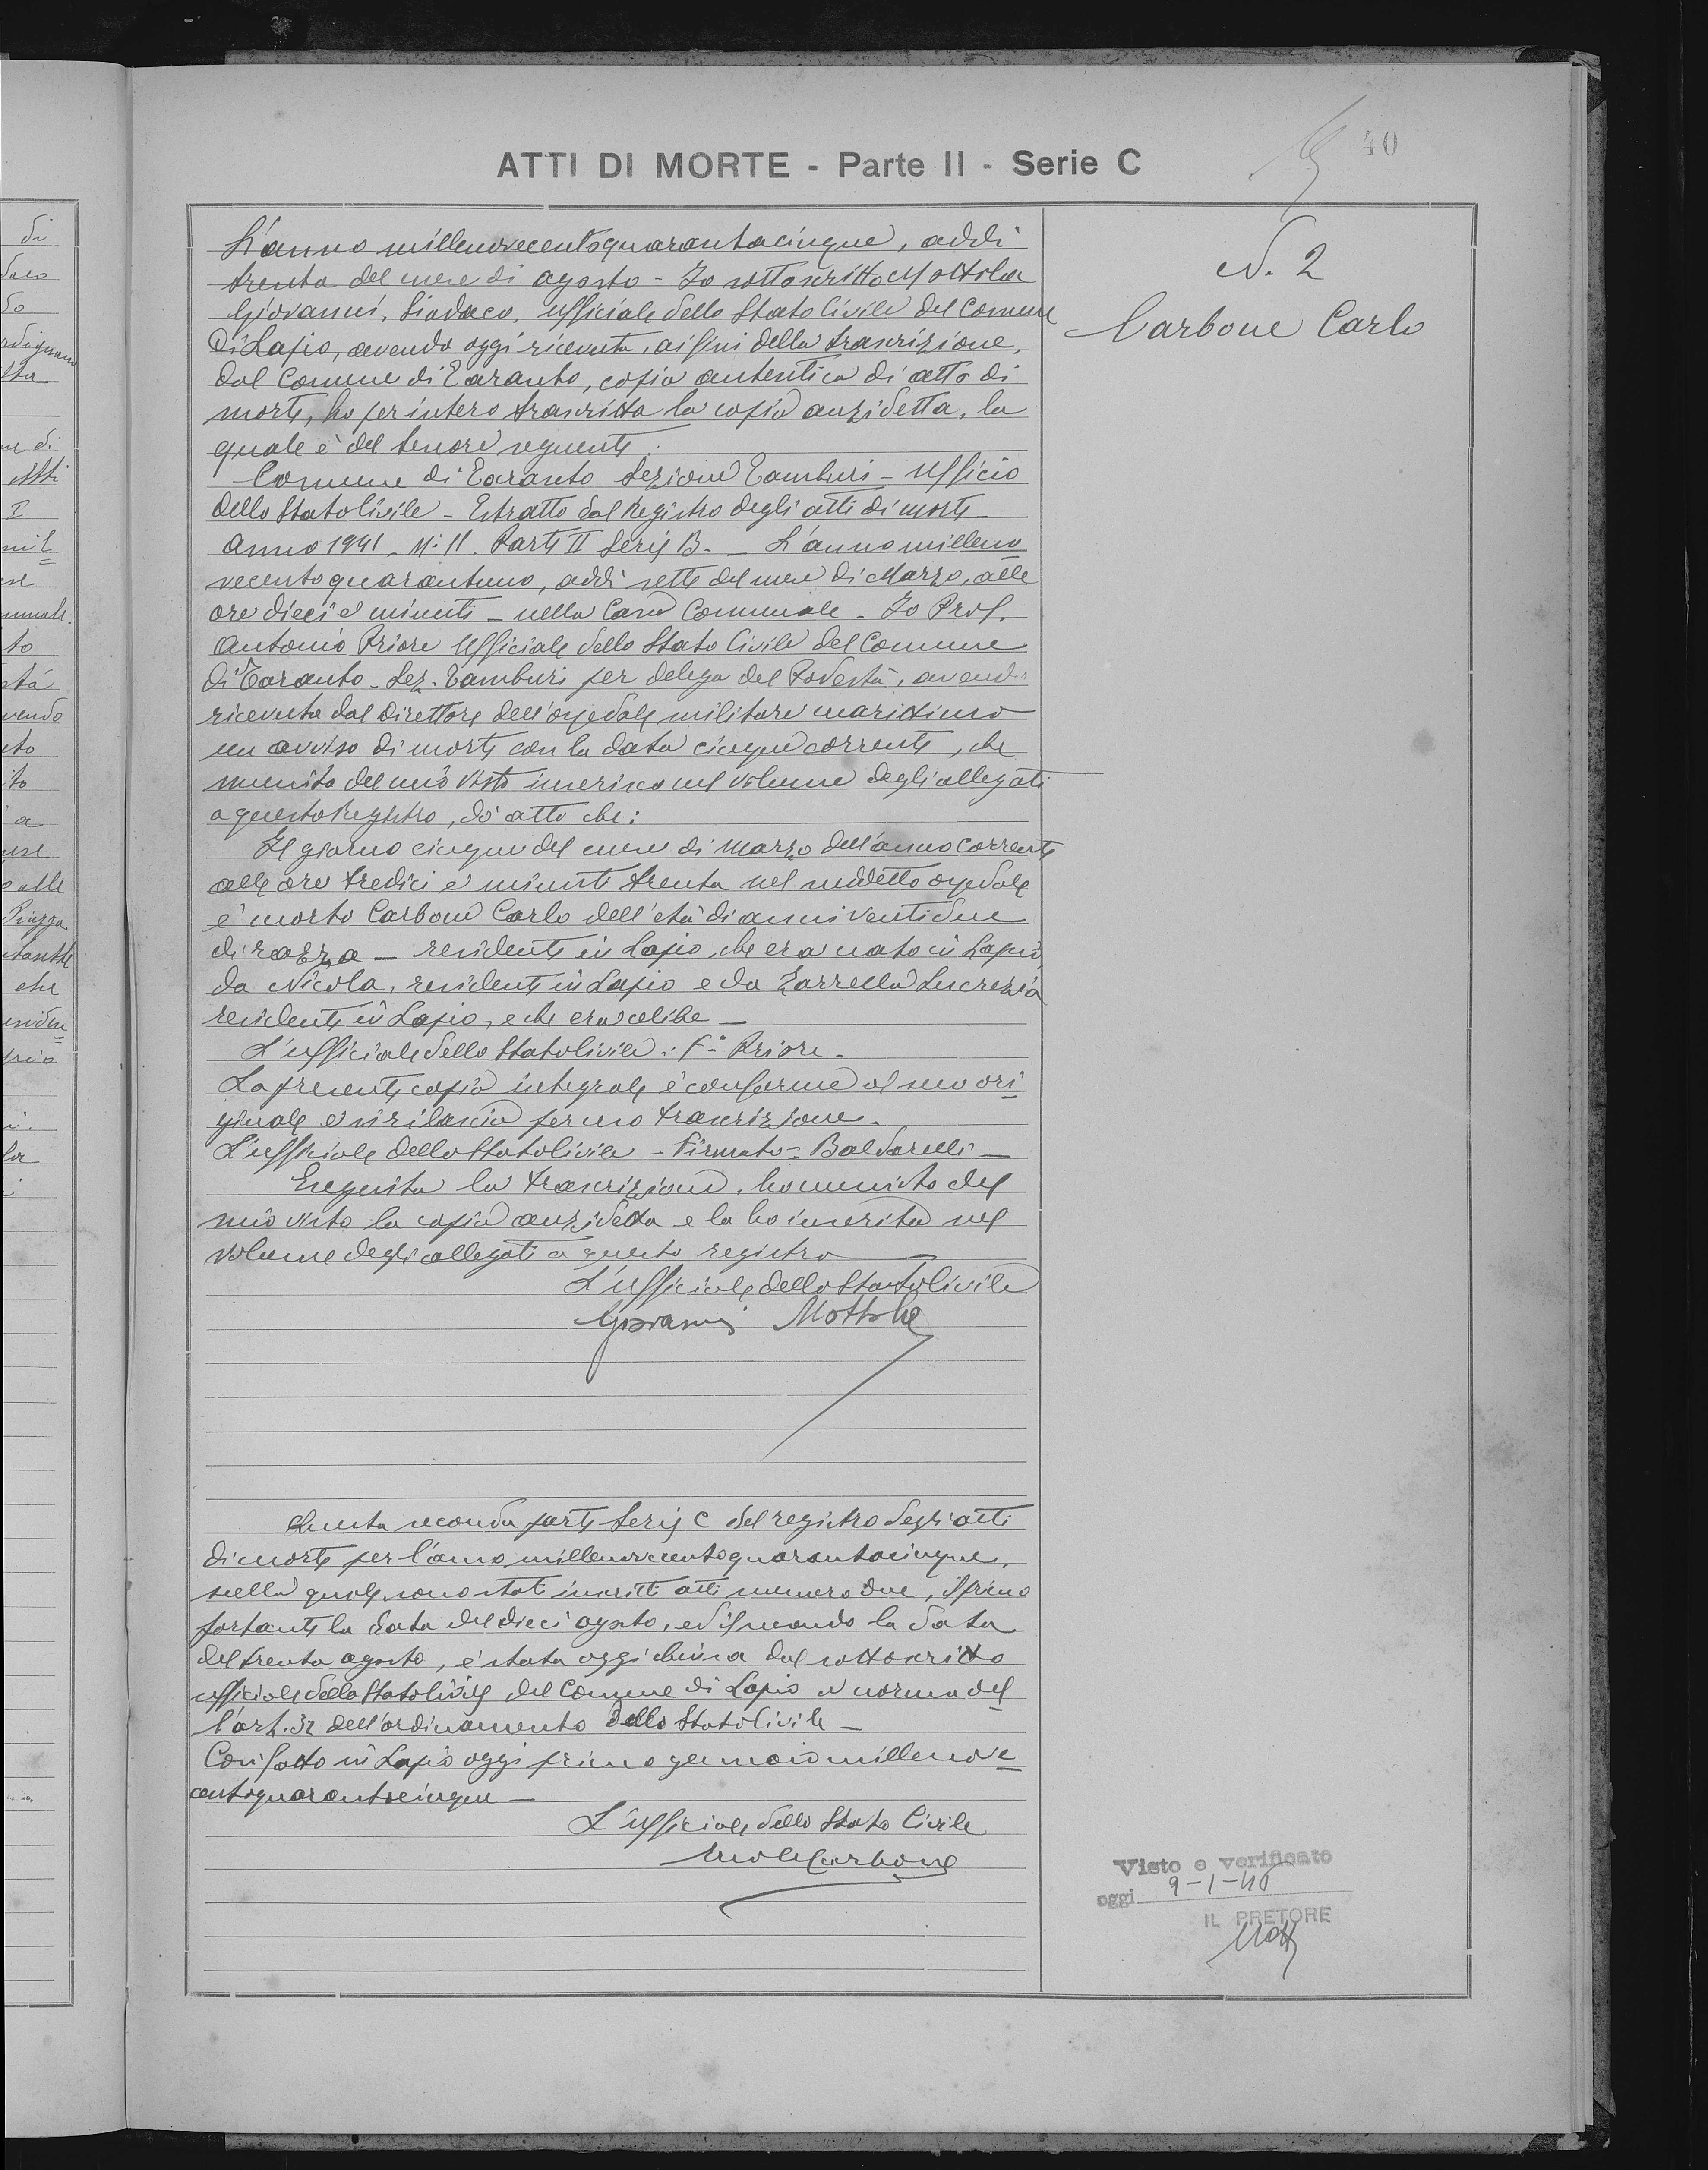 40
ATTI DI MORTE - Parte II - Serie C
N. 2
Carbone Carlo
L'anno millenovecentoquarantacinque, addì
trenta del mese di agosto - Io sottoscritto Mottola
Giovanni, Sindaco, Ufficiale dello Stato Civile del Comune
Di Lapio, avendo oggi ricevuta, ai fini della trascrizione,
dal Comune di Taranto, copia autentica di atto di
morte, ho per intero trascritta la copia anzidetta, la
quale è del tenore seguente:
Comune di Taranto Sezione Tamburi - Ufficio
dello Stato Civile - Estratto dal Registro degli atti di morte -
Anno 1941 - N. 11. Parte II Serie B. - L'anno milleno
vecentoquarantuno, addì sette del mese di Marzo, alle
ore dieci e minuti - nella Casa Comunale. Io Prof.
Antonio Priore Ufficiale dello Stato Civile del Comune
di Taranto - Sez. Tamburi per delega del Podestà, avendo
ricevuto dal Direttore dell'ospedale militare marittimo
un avviso di morte con la data cinque corrente, che
munito del mio visto inserisco nel volume degli allegati
a questo Registro, dò atto che:
Il giorno cinque del mese di marzo dell'anno corrente
alle ore tredici e minuti trenta nel suddetto ospedale
è morto Carbone Carlo dell'età di anni ventidue
di razza - residente in Lapio, che era nato in Lapio
da Nicola, residente in Lapio e da Zarrella Lucrezia
residente in Lapio, e che era celibe -
L'ufficiale dello Stato Civile: F° Priore -
La presente copia integrale è conforme al suo ori
ginale e si rilascia per uso trascrizione.
L'ufficiale dello Stato Civile - Firmato = Baldarelli -
Eseguita la trascrizione, ho munito del
mio visto la copia anzidetta e la ho inserita nel
volume degli allegati a questo registro
L'ufficiale dello Stato Civile
Giovanni Mottola
Questa seconda parte Serie C del registro degli atti
di morte per l'anno millenovecentoquarantacinque,
nella quale sono stati inscritti atti numero due, il primo
portante la data del dieci agosto, ed il secondo la data
del trenta agosto, è stata oggi chiusa dal sottoscritto
ufficiale dello Stato Civile del Comune di Lapio a norma del
l'art. 32 dell'ordinamento dello Stato Civile -
Così fatto in Lapio oggi primo gennaio millenove
centoquarantaseiesque -
L'ufficiale dello Stato Civile
Carbone
Visto e verificato
oggi 9-1-46
IL PRETORE